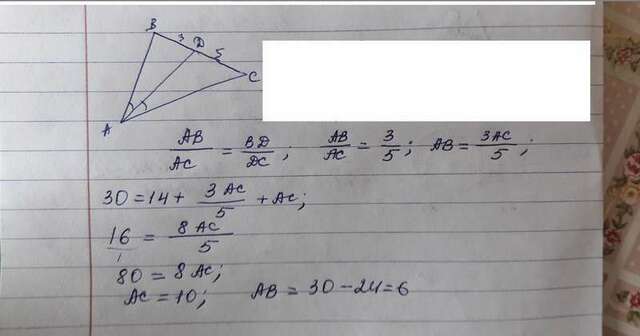 B
3 D
5
C
A
AB/AC = BD/DC ; AB/AC = 3/5 ; AB = 3AC/5 ;
30 = 14 + 3AC/5 + AC ;
16/1 = 8AC/5
80 = 8AC ;
AC = 10 ; AB = 30 - 24 = 6